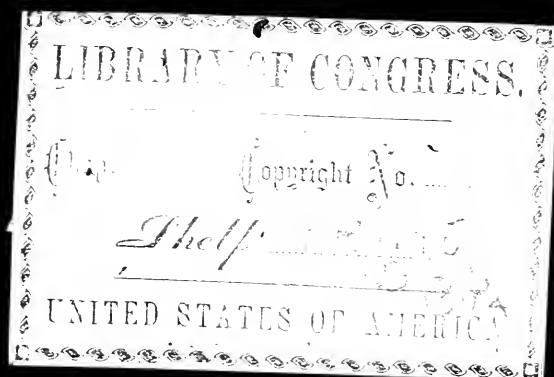 LIBRARY OF CONGRESS.
Chap. Copyright No.
Shelf
UNITED STATES OF AMERICA